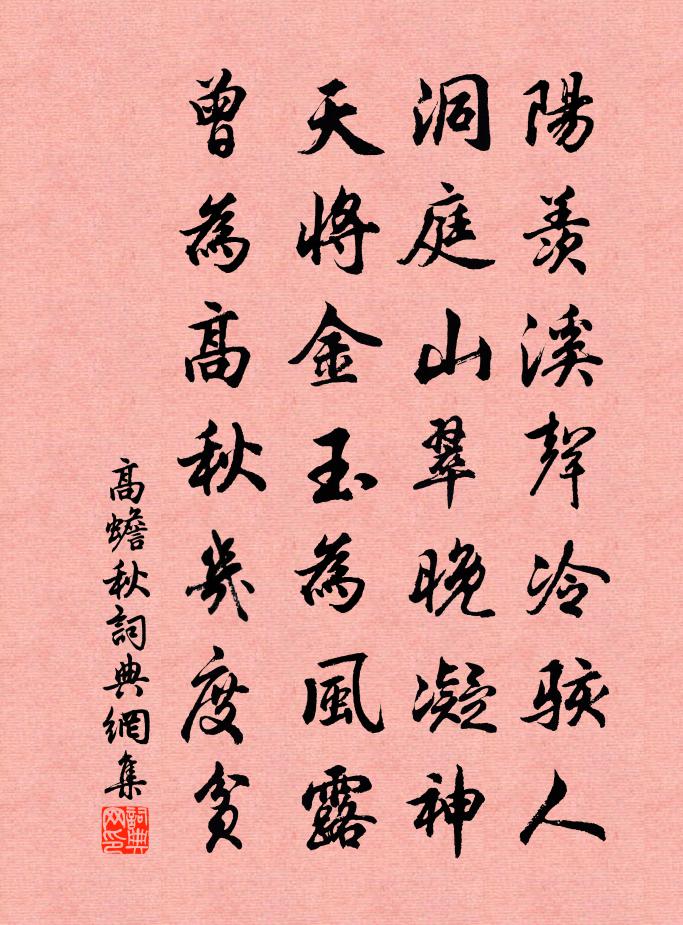 陽羨溪聲冷駭人
洞庭山翠晚凝神
天將金玉為風露
曾為高秋幾度貧
高蟾秋詞典網集
詞典网印